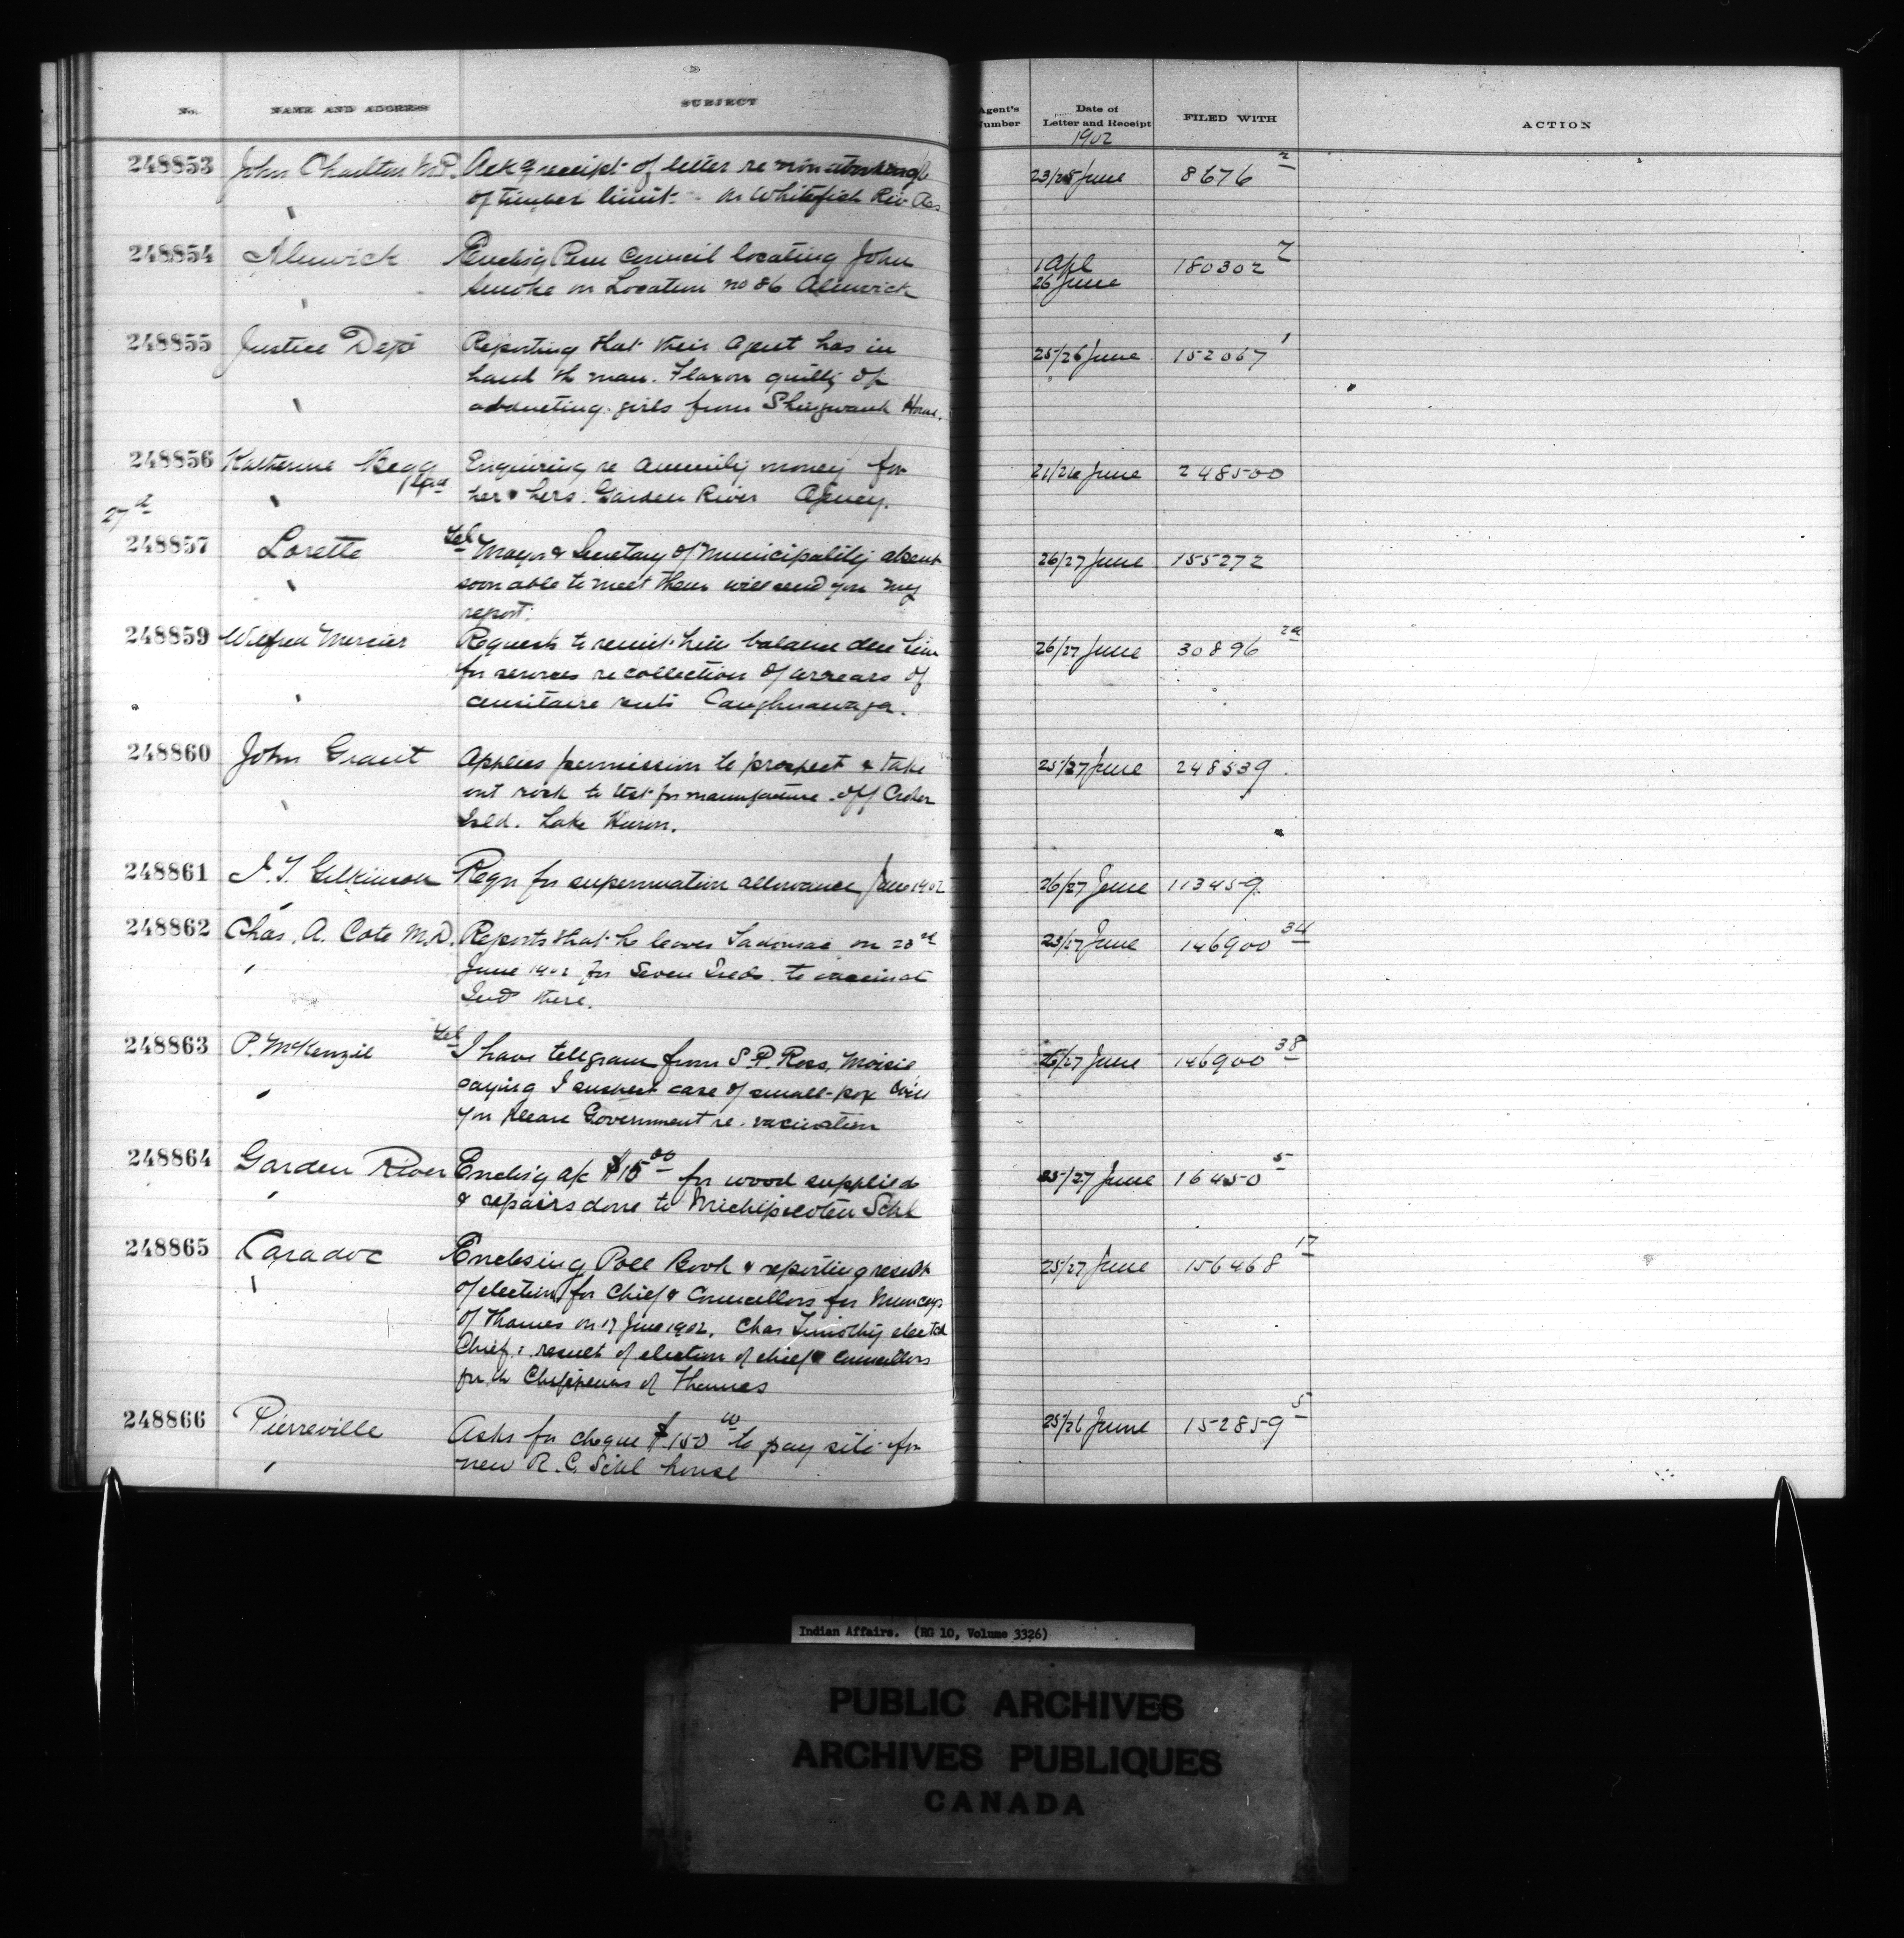 No. NAME AND ADDRESS SUBJECT Agent's Number Date of Letter and Receipt FILED WITH ACTION
1902
248853 John Charlton M.P. Ack g receipt of letter re non working 23/25 June 8676 2
of timber limit on Whitefish Riv Res
248854 Alnwick Enclsg Resn Council locating John 1 Apl 180302 7
Smoke on Location no 86 Alnwick 26 June
248855 Justice Dept Reporting that their Agent has in 25/26 June 152067 1
hand th man. Flaxon guilty of
abducting girls from Shingwauk Home.
248856 Katherine Begg Enquiring re annuity money for 21/26 June 248500
her & hers. Garden River Agency.
27th
248857 Lorette Tel Mayor & Secretary of Municipality absent 26/27 June 155272
soon able to meet them will send you my
report.
248859 Wilfred Mercier Requests to remit him balance due him 26/27 June 30896 2a
for services re collection of arrears of
censitaire rents Caughnawaga.
248860 John Grant Applies permission to prospect & take 25/27 June 248539
out rock to test for manufacture off
Isld. Lake Huron.
248861 J. T. Gilkinson Reqn for superannuation allowance June 1902 26/27 June 113459
248862 Chas. A. Cote M.D. Reports that he leaves Tadousac on 23rd 23/27 June 146900 34
June 1902 for Seven Islds. to vaccinat
Inds there.
248863 P. McKenzie Tel I have telegram from S. P. Ross, Moisie 26/27 June 146900 38
saying I suspect case of small-pox Will
you please Government re. vaccination
248864 Garden River Enclsig a/c $15 00 for wood supplied 25/27 June 16450 5
& repairs done to Michipicoten Schl
248865 Caradoc Enclosing Poll Book & reporting result 25/27 June 156468 17
of election for Chief & Councillors for Munceys
of Thames on 17 June 1902. Chas Timothy elected
Chief: result of election of chief & Councillors
for th Chippewas of Thames
248866 Pierreville Asks for cheque $150 00 to pay site for 25/26 June 152859 5
new R. C. Schl house
Indian Affairs. (RG 10, Volume 3326)
PUBLIC ARCHIVES
ARCHIVES PUBLIQUES
CANADA